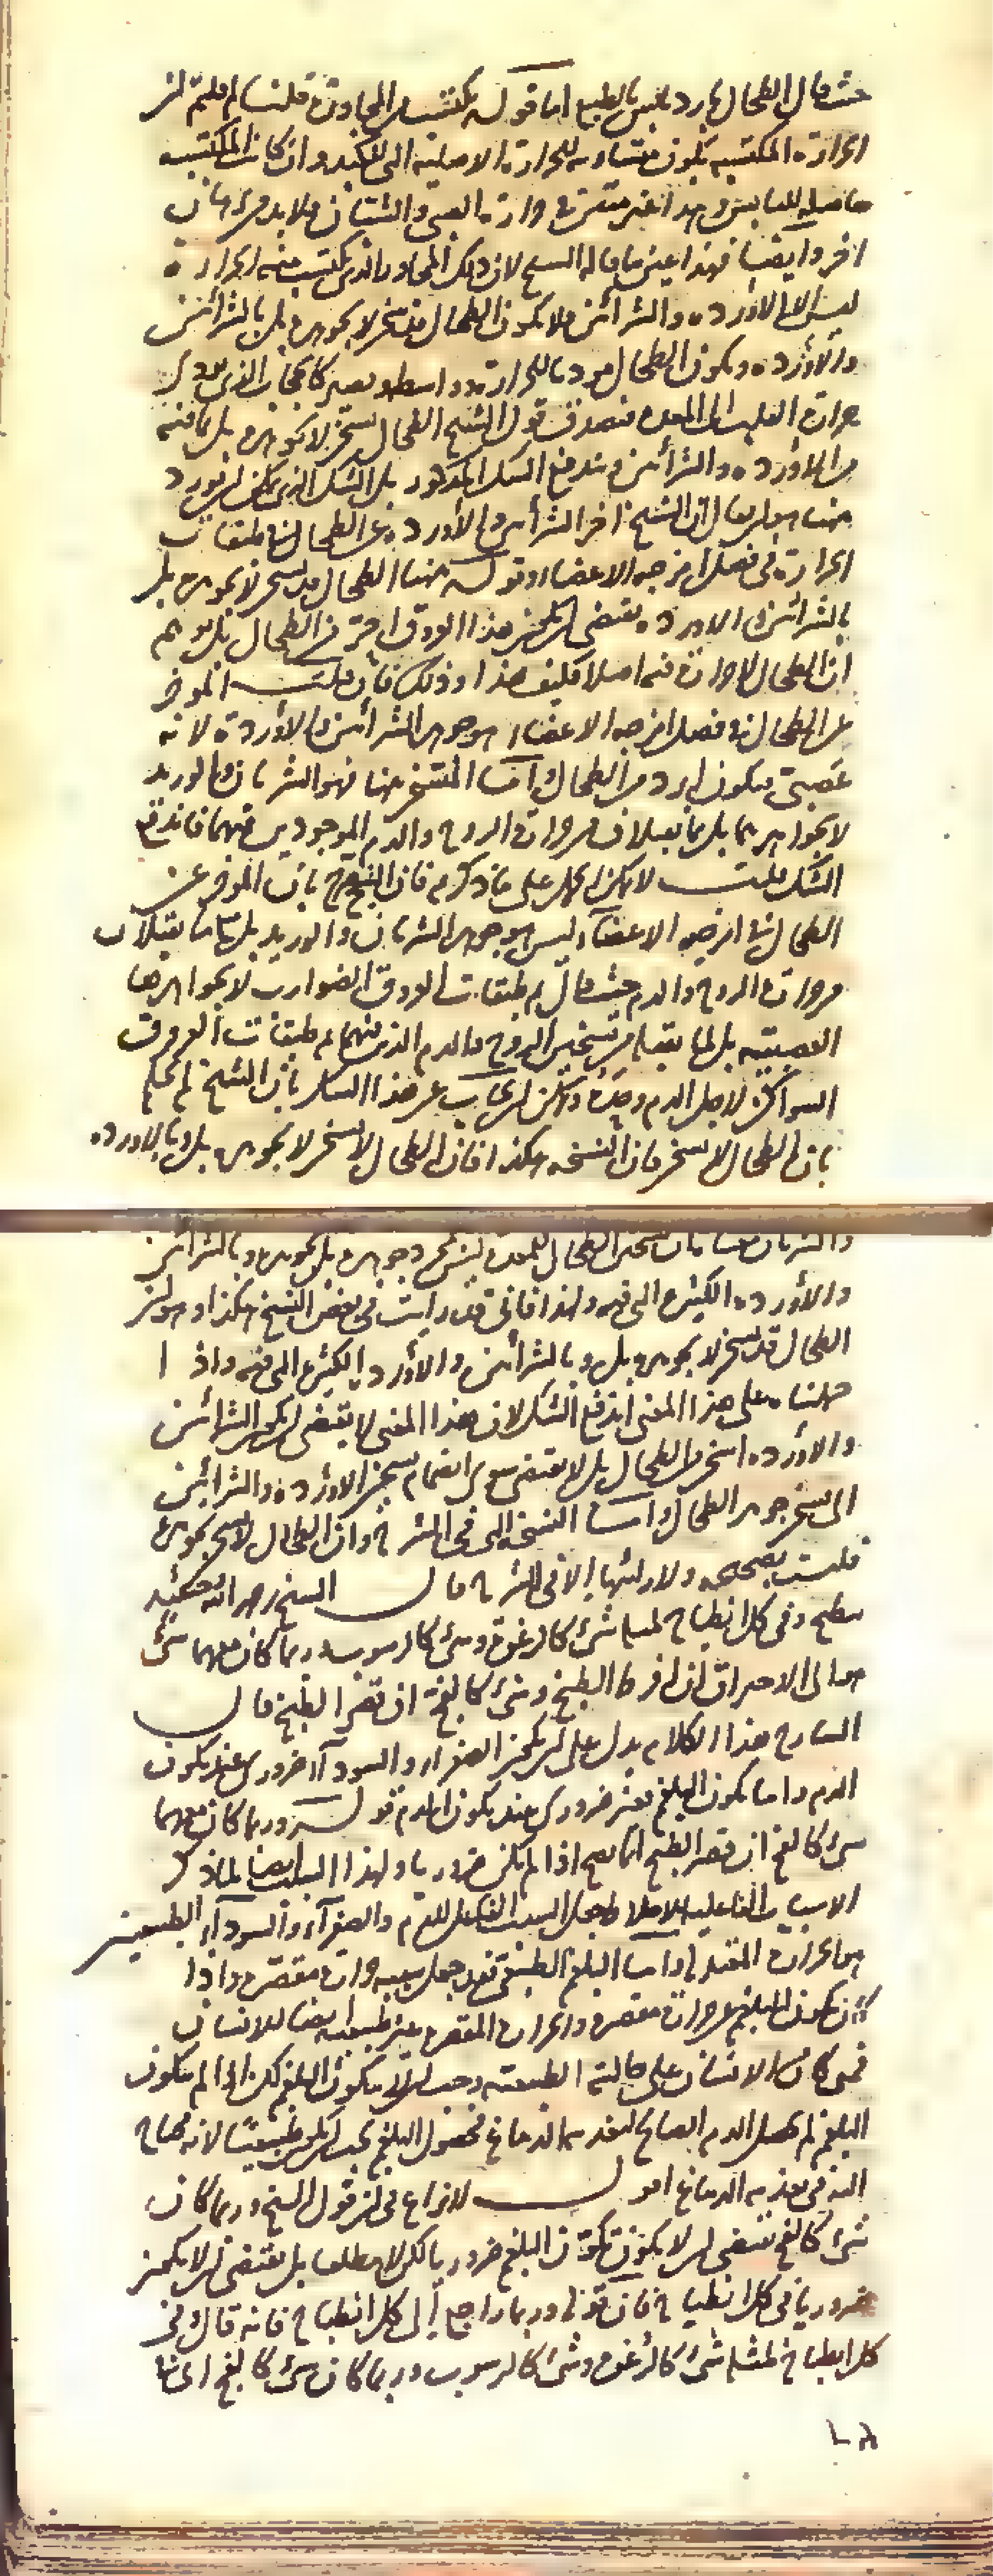 حيث قال الطحال بارد يابس بالطبع اما قوله يكتسب من المجاورة قلنا لم قلتم ان
الحرارة المكتسبة تكون مساوية للحرارة الاصلية التي للكبد وان كانت المكتسبة
حرارة الصبي والشبان فلا بد من برهان
اخر وايضا فهذا عين ما قاله الشيخ لان ذلك المجاور الذي يكتسب منه الحرارة
ليس الا الاوردة والشرائين فلا يكون الطحال مسخن لا بجوهره بل بالشرائين
والاوردة ويكون الطحال موديا للحرارة وواسطة يصير كالحجاب الذي يودي
حرارة القلب الى المعدة فيصدق قول الشيخ الطحال يسخن لا بجوهره بل بما فيه
من الاوردة والشرائين ويندفع الشك المذكور بل الشك الذي يمكن ان يورد
هنا هو ان يقال ان الشيخ اخر الشرائين والاوردة عن الطحال في طبقات
الحرارة في فصل امزجة الاعضاء وقوله هنا الطحال قد يسخن لا بجوهره بل
بالشرائين والاوردة يقتضي ان يكون هذا العروق احر من الطحال بل يوهم
ان الطحال لا حرارة فيه اصلا فكيف هذا وذلك فان قلت الموخر
عن الطحال في فصل امزجة الاعضاء هو جوهر الشرائين والاوردة لانه
عصبي فيكون ابرد من الطحال واما المسخن هنا فهو الشريان والوريد
لا بجواهرهما بل بما يقبلان من حرارة الروح والدم الموجودين فيهما فاندفع
الشك قلت لا يمكن الحمل على ما ذكرتم فان الشيخ صرح بان الموخر عن
الطحال في امزجة الاعضاء ليس هو جوهر الشريان والوريد بل هما بما يقبلان
من حرارة الروح والدم حيث قال ثم طبقات العروق الضوارب لا بجواهرها
العصبية بل لما يقبله من تسخين الروح والدم الذي فيهما ثم طبقات العروق
السواكن لاجل الدم وحده ويمكن ان يجاب عن هذا الشك بان الشيخ لم يحكم
بان الطحال لا يسخن فان النسخة هكذا فان الطحال لا يسخن لا بجوهره بل وبالاوردة
والشريان بان تسخين الطحال للمعدة ليس بمجرد جوهره بل بجوهره وبالشرائين
والاوردة الكثيرة التي فيه ولهذا فاني قد رايت في بعض النسخ هكذا وهو ان
الطحال قد يسخن لا بجوهره بل وبالشرائين والاوردة الكثيرة التي فيه واذا
حملناه على هذا المعنى اندفع الشك لان هذا المعنى لا يقتضي ان يكون الشرائين
والاوردة اسخن من الطحال بل لا يقتضي سوى انضمام تسخين الاوردة والشرائين
الى تسخين جوهر الطحال واما النسخة التي في الشرح وان الطحال لا يسخن بجوهره
فليست بصحيحة ولا رايتها الا في الشرح قال الشيخ رحمه الله
وفي كل انطباخ لمثله شئ كالرغوة وشئ كالرسوب وربما كان معهما شئ
هو الى الاحتراق ان افرط الطبخ وشئ كالفج ان قصر الطبخ قال
الشارح هذا الكلام يدل على ان تكون الصفراء والسوداء ضروري عند تكون
الدم واما تكون البلغم فغير ضروري عند تكون الدم قوله وربما كان معهما
شئ كالفج ان قصر الطبخ انما يصح اذا لم يكن ضروريا ولهذا السبب ايضا لما ذكر
الاسباب الفاعلية للاخلاط جعل السبب الفاعل للدم والصفراء والسوداء الطبيعيين
هو الحرارة المعتدلة واما البلغم الطبيعي فقد جعل سببه حرارة مقصرة واذا
كان تكون البلغم عن حرارة مقصرة والحرارة المقصرة غير طبيعية ايضا للانسان
فمتى كان الانسان على حالته الطبيعية وجب ان لا يتكون البلغم لكن اذا لم يتكون
البلغم لم يحصل الدم الصالح لتغذية الدماغ فحصول البلغم يجب ان يكون طبيعيا لانه يحتاج
اليه في تغذية الدماغ اقول لا نزاع في ان قول الشيخ وربما كان
شئ كالفج يقتضي ان لا يكون تكون البلغم ضروريا لكن لا مطلقا بل يقتضي ان لا يكون
ضروريا في كل انطباخ فان قوله وربما راجع الى كل انطباخ فانه قال في
كل انطباخ لمثله شئ كالرغوة وشئ كالرسوب وربما كان شئ كالفج